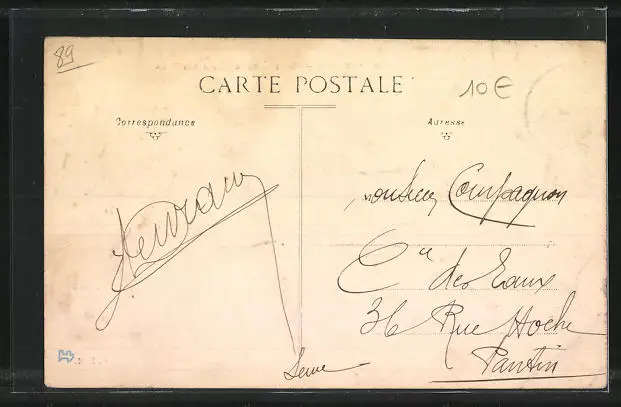 89
CARTE POSTALE
10€
Correspondance
Adresse
Monsieur Compagnon
Cie des Eaux
36 Rue Hoche
Pantin
Seine